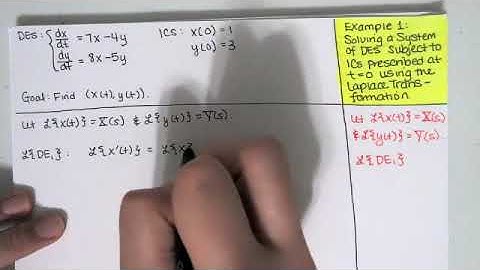 DEs: { dx/dt = 7x-4y
dy/dt = 8x-5y
ICs: x(0)=1
y(0)=3
Goal: Find (x(t), y(t)).
Example 1:
Solving a System
of DEs Subject to
ICs Prescribed at
t=0 using the
Laplace Trans-
formation
Let ℒ{x(t)}=X(s) & ℒ{y(t)}=Y(s).
ℒ{DE₁}: ℒ{x'(t)} = ℒ{x
Let ℒ{x(t)}=X(s)
& ℒ{y(t)}=Y(s).
ℒ{DE₁}